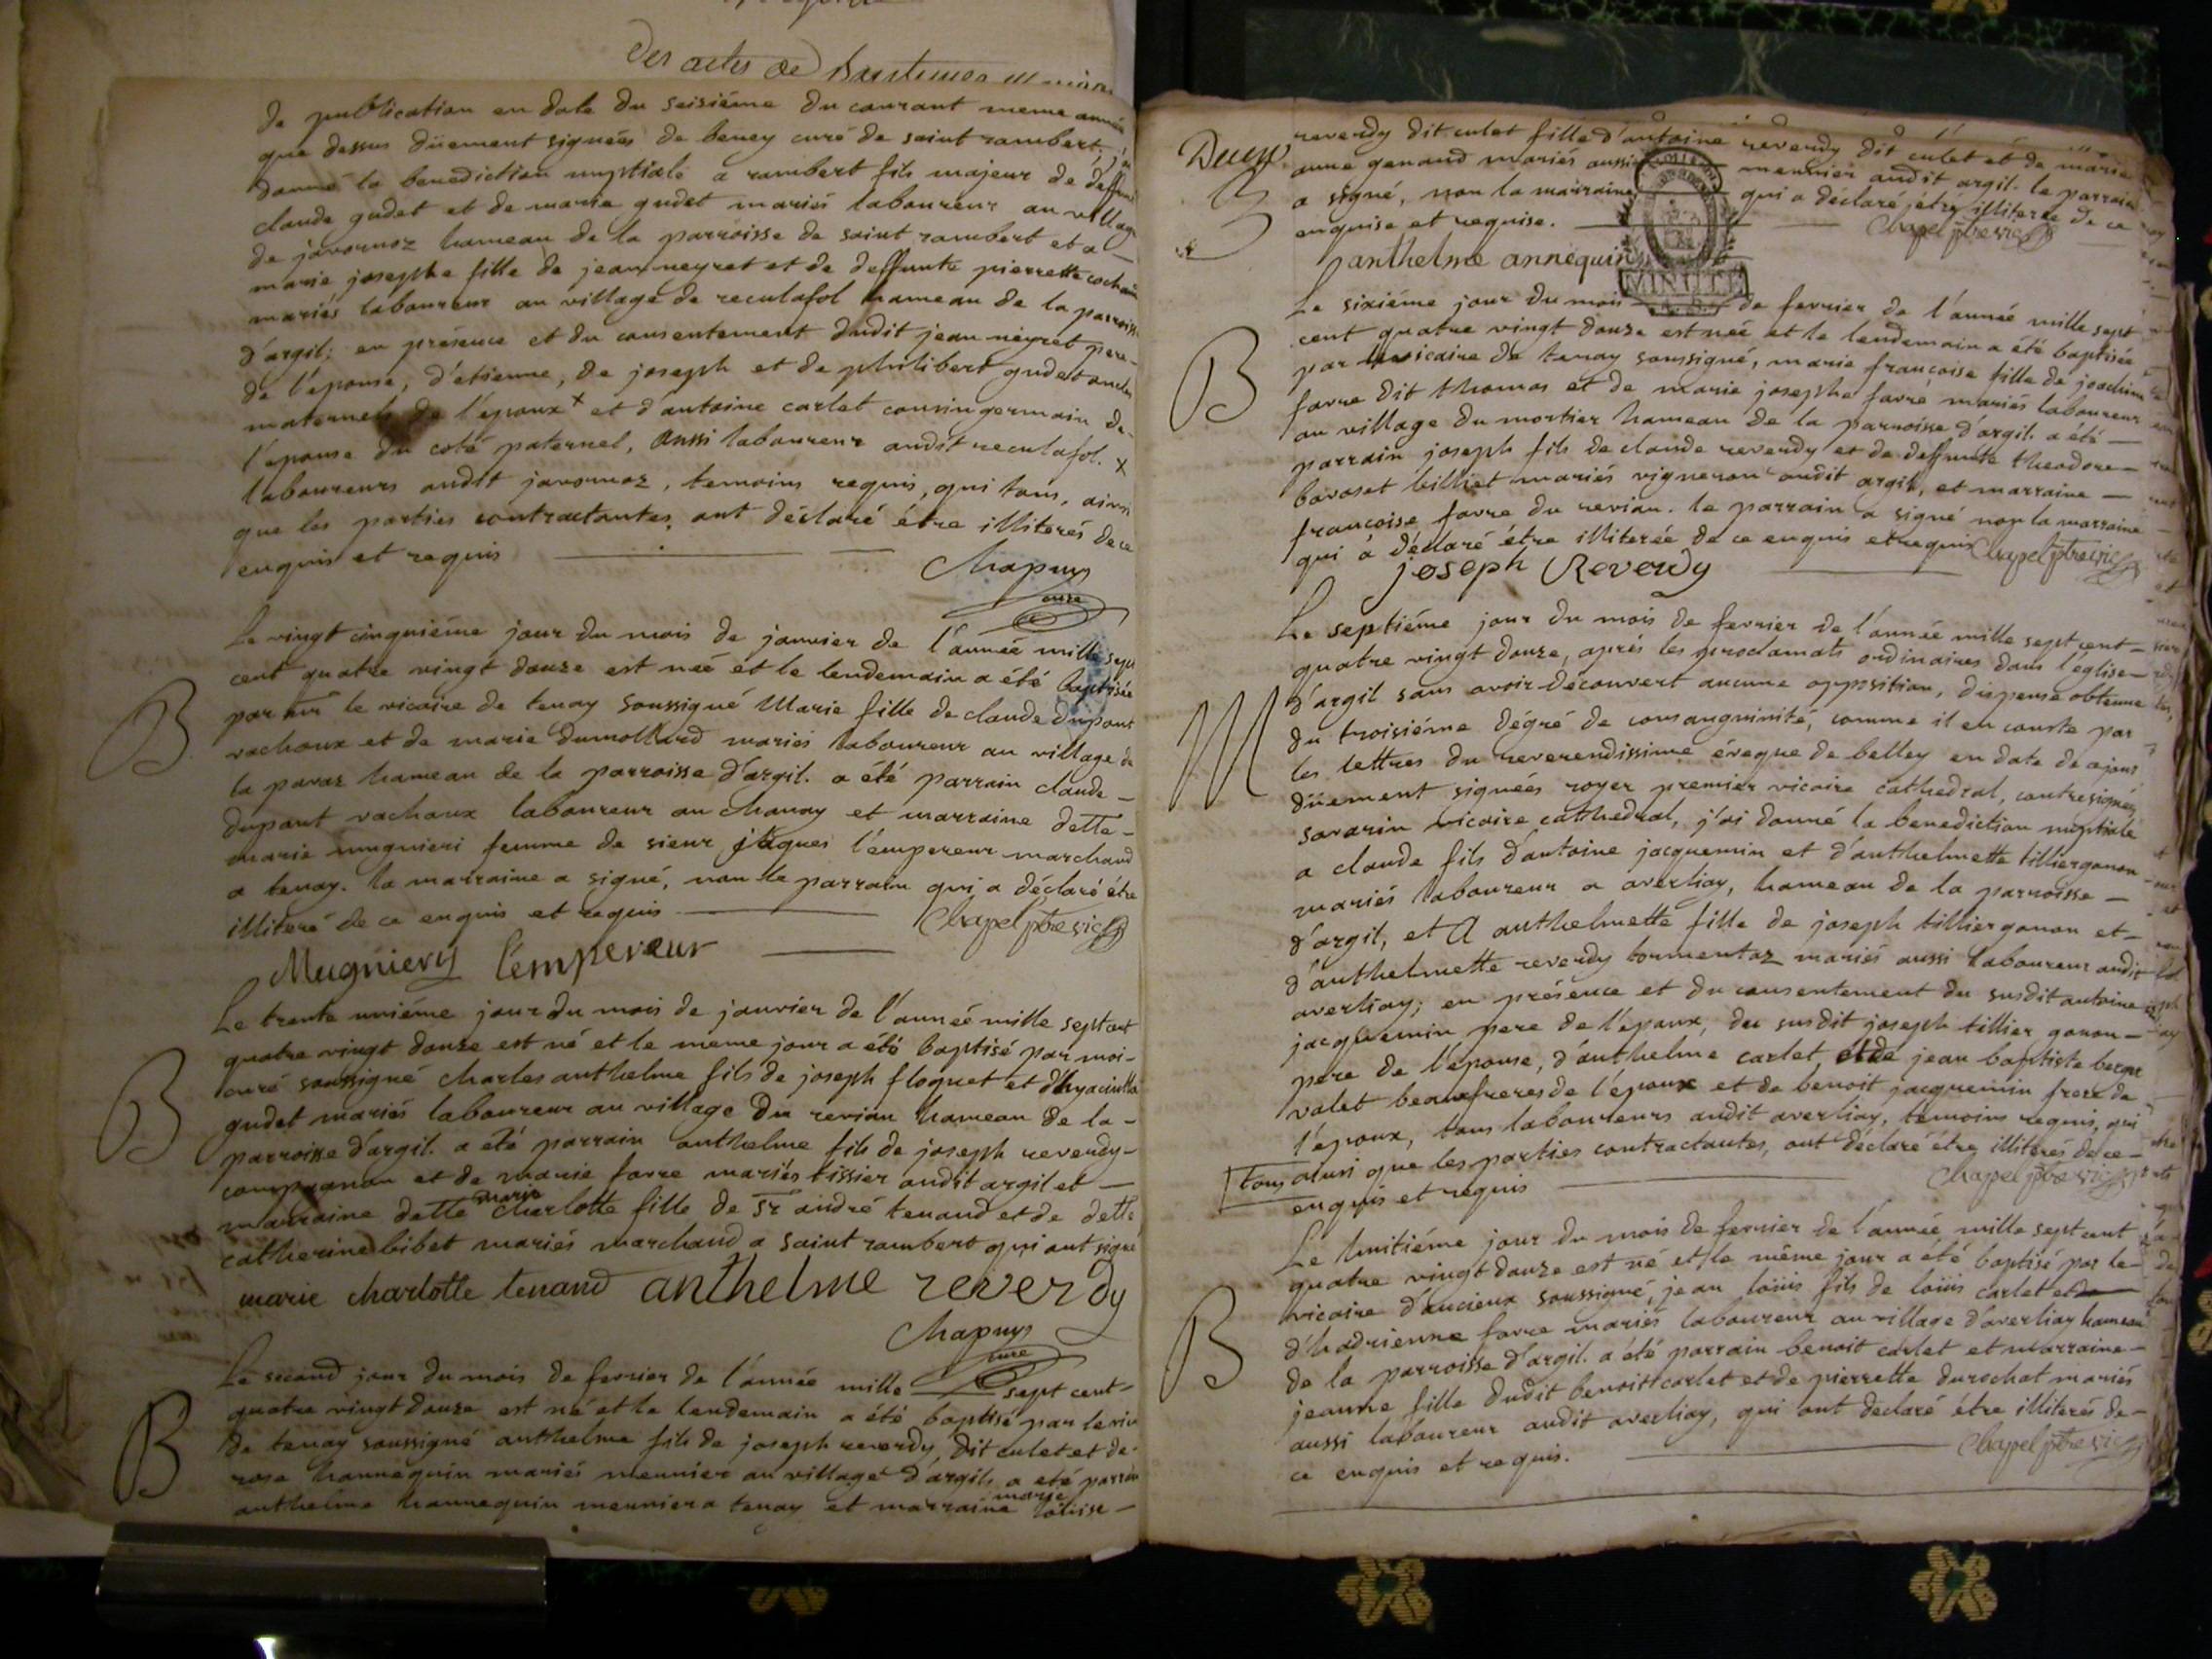 des actes de
de publication en date du seisiéme du courant meme année
que dessus düement signées de beney curé de saint rambert, j'ai
donné la benediction nuptiale a rambert fils majeur de deffunt
claude gudet et de marie gudet mariés laboureur au village
de javornoz hameau de la parroisse de saint rambert et a
marie josephe fille de jean neyret et de deffunte pierrette
mariés laboureur au village de reculafol hameau de la parroisse
d'argil; en présence et du consentement dudit jean neyret pere
de l'épouse, d'etienne, de joseph et de philibert gudet oncles
maternels de l'époux x et d'antoine carlet cousin germain de
l'épouse du coté paternel, aussi laboureur audit reculafol. x
laboureurs audit javornoz, temoins requis, qui tous, ainsi
que les parties contractantes, ont déclaré être illiterés de ce
enquis et requis
Chapuys
curé
Le vingt cinquiéme jour du mois de janvier de l'année mille sept
cent quatre vingt douze est née et le lendemain a été baptisée
B
par le vicaire de tenay soussigné Marie fille de claude dupont
vachoux et de marie dumollard mariés laboureur au village de
la pavaz hameau de la parroisse d'argil. a été parrain claude
dupont vachoux laboureur au chanay et marraine delle
marie mugnieri femme de sieur jâques l'empereur marchand
a tenay. la marraine a signé, non le parrain qui a déclaré être
illiteré de ce enquis et requis
Chapel ptre vic
Mugniery l'empereur
Le trente uniéme jour du mois de janvier de l'année mille sept cent
quatre vingt douze est né et le meme jour a eté baptisé par moi
B
curé soussigné charles anthelme fils de joseph floquet et d'hyacinthe
gudet mariés laboureur au village du revian hameau de la
parroisse d'argil. a été parrain anthelme fils de joseph reverdy
compagnon et de marie favre mariés tissier audit argil et
marraine delle marie charlotte fille de Sr andré tenand et de delle
catherine bibet mariés marchand a saint rambert qui ont signé
marie charlotte tenand anthelme reverdy
Chapuys
curé
Le second jour du mois de fevrier de l'année mille sept cent
quatre vingt douze est né et le lendemain a été baptisé par le vic
B
de tenay soussigné anthelme fils de joseph reverdy dit culet et de
rose hannequin mariés meunier au village d'argil, a eté parrain
anthelme hannequin meunier a tenay et marraine marie loüise
reverdy dit culet fille d'antoine reverdy dit culet et de marie
anne genand mariés aussi meunier audit argil. le parrain
a signé, non la marraine qui a déclaré être illiterée de ce
enquise et requise.
Chapel ptre vic
anthelme annequin
MINUTE
Le sixiéme jour du mois de fevrier de l'année mille sept
cent quatre vingt douze est née et le lendemain a été baptisée
B
par le vicaire de tenay soussigné, marie françoise fille de joachim
favre dit thomas et de marie josephe favre mariés laboureur
au village du mortier hameau de la parroisse d'argil. a été
parrain joseph fils de claude reverdy et de deffunte theodore
bavoset billiet mariés vigneron audit argil, et marraine
françoise favre du revian. le parrain a signé non la marraine
qui a déclaré être illiterée de ce enquis et requis Chapel ptre vic
joseph Reverdy
Le septiéme jour du mois de fevrier de l'année mille sept cent
quatre vingt douze, aprés les proclamats ordinaires dans l'église
M
d'argil sans avoir découvert aucune opposition, dispense obtenue
du troisiéme dégré de consanguinité, comme il en conste par
les lettres du reverendissime évêque de belley en date de ce jour
düement signées royer premier vicaire cathedral, contresignées
savarin vicaire cathedral, j'ai donné la benediction nuptiale
a claude fils d'antoine jacquemin et d'anthelmette tilliergonon
mariés laboureur a averliay, hameau de la parroisse
d'argil, et A anthelmette fille de joseph tillier gonon et
d'anthelmette reverdy tormentaz mariés aussi laboureur audit
averliay; en présence et du consentement du susdit antoine
jacquemin pere de l'époux, du susdit joseph tillier gonon
pere de l'épouse, d'anthelme carlet et de jean baptiste
valet beaufreres de l'époux et de benoit jacquemin frere de
l'époux, tous laboureurs audit averliay, temoins requis, qui
tous ainsi que les parties contractantes, ont déclaré être illiterés de ce
enquis et requis
Chapel ptre vic
Le huitiéme jour du mois de fevrier de l'année mille sept cent
quatre vingt douze est né et le même jour a eté baptisé par le
B
vicaire d'ancieux soussigné, jean loüis fils de loüis carlet et
d'hadrienne favre mariés laboureur au village d'averliay hameau
de la parroisse d'argil. a été parrain benoit carlet et marraine
jeanne fille dudit benoit carlet et de pierrette durochat mariés
aussi laboureur audit averliay, qui ont declaré être illiterés de
ce enquis et requis.
Chapel ptre vic